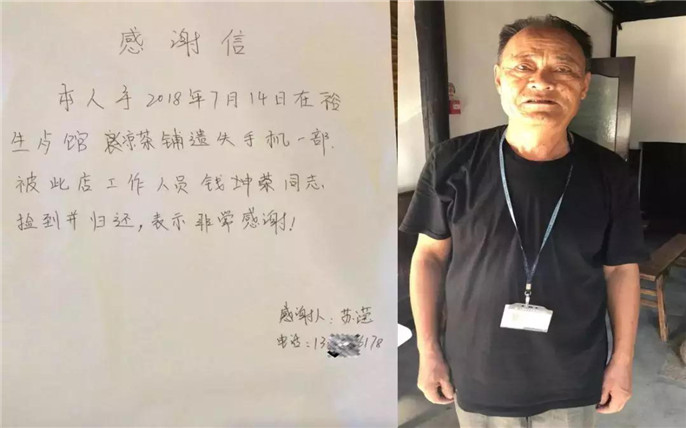 感谢信
本人于2018年7月14日在裕
生卢馆 凉茶铺遗失手机一部.
被此店工作人员钱坤荣同志
捡到并归还,表示非常感谢!
感谢人:苏滢
电话:13 178